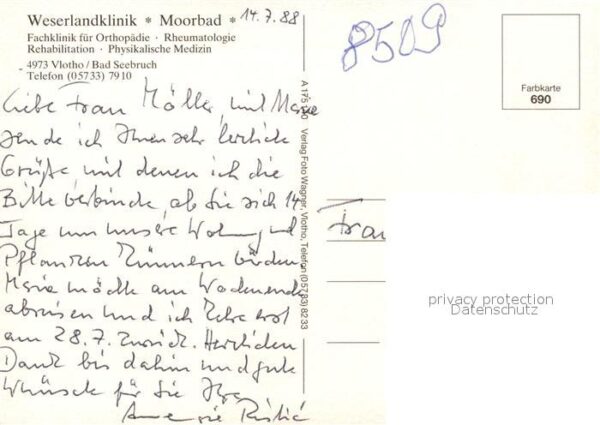 Weserlandklinik * Moorbad *
14.7.88
Fachklinik für Orthopädie · Rheumatologie
Rehabilitation · Physikalische Medizin
4973 Vlotho / Bad Seebruch
Telefon (05733) 7910
Liebe Frau Möller, und
sende ich Ihnen sehr herzliche
Grüße mit denen ich die
Bitte verbinde, ob Sie sich 14
Tage um unsere Wohnung und
Pflanzen kümmern würden
Maria möchte am Wochenende
abreisen und ich kehre erst
am 28.7. zurück. Herzlichen
Dank bis dahin und gute
Wünsche für Sie Ihre
8509
Farbkarte
690
Verlag Foto Wagner, Vlotho, Telefon (05733) 8233
Frau
privacy protection
Datenschutz